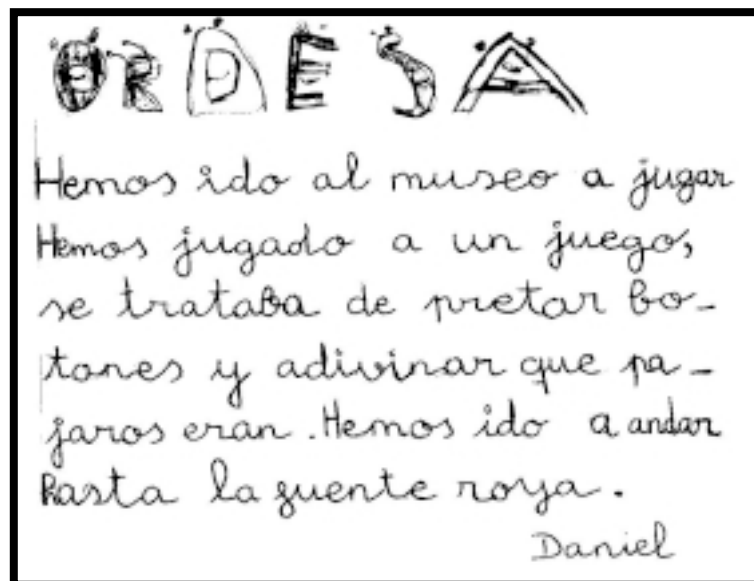 ORDESA
Hemos ido al museo a jugar
Hemos jugado a un juego,
se trataba de pretar bo-
tones y adivinar que pa-
jaros eran. Hemos ido a andar
hasta la fuente roya.
Daniel